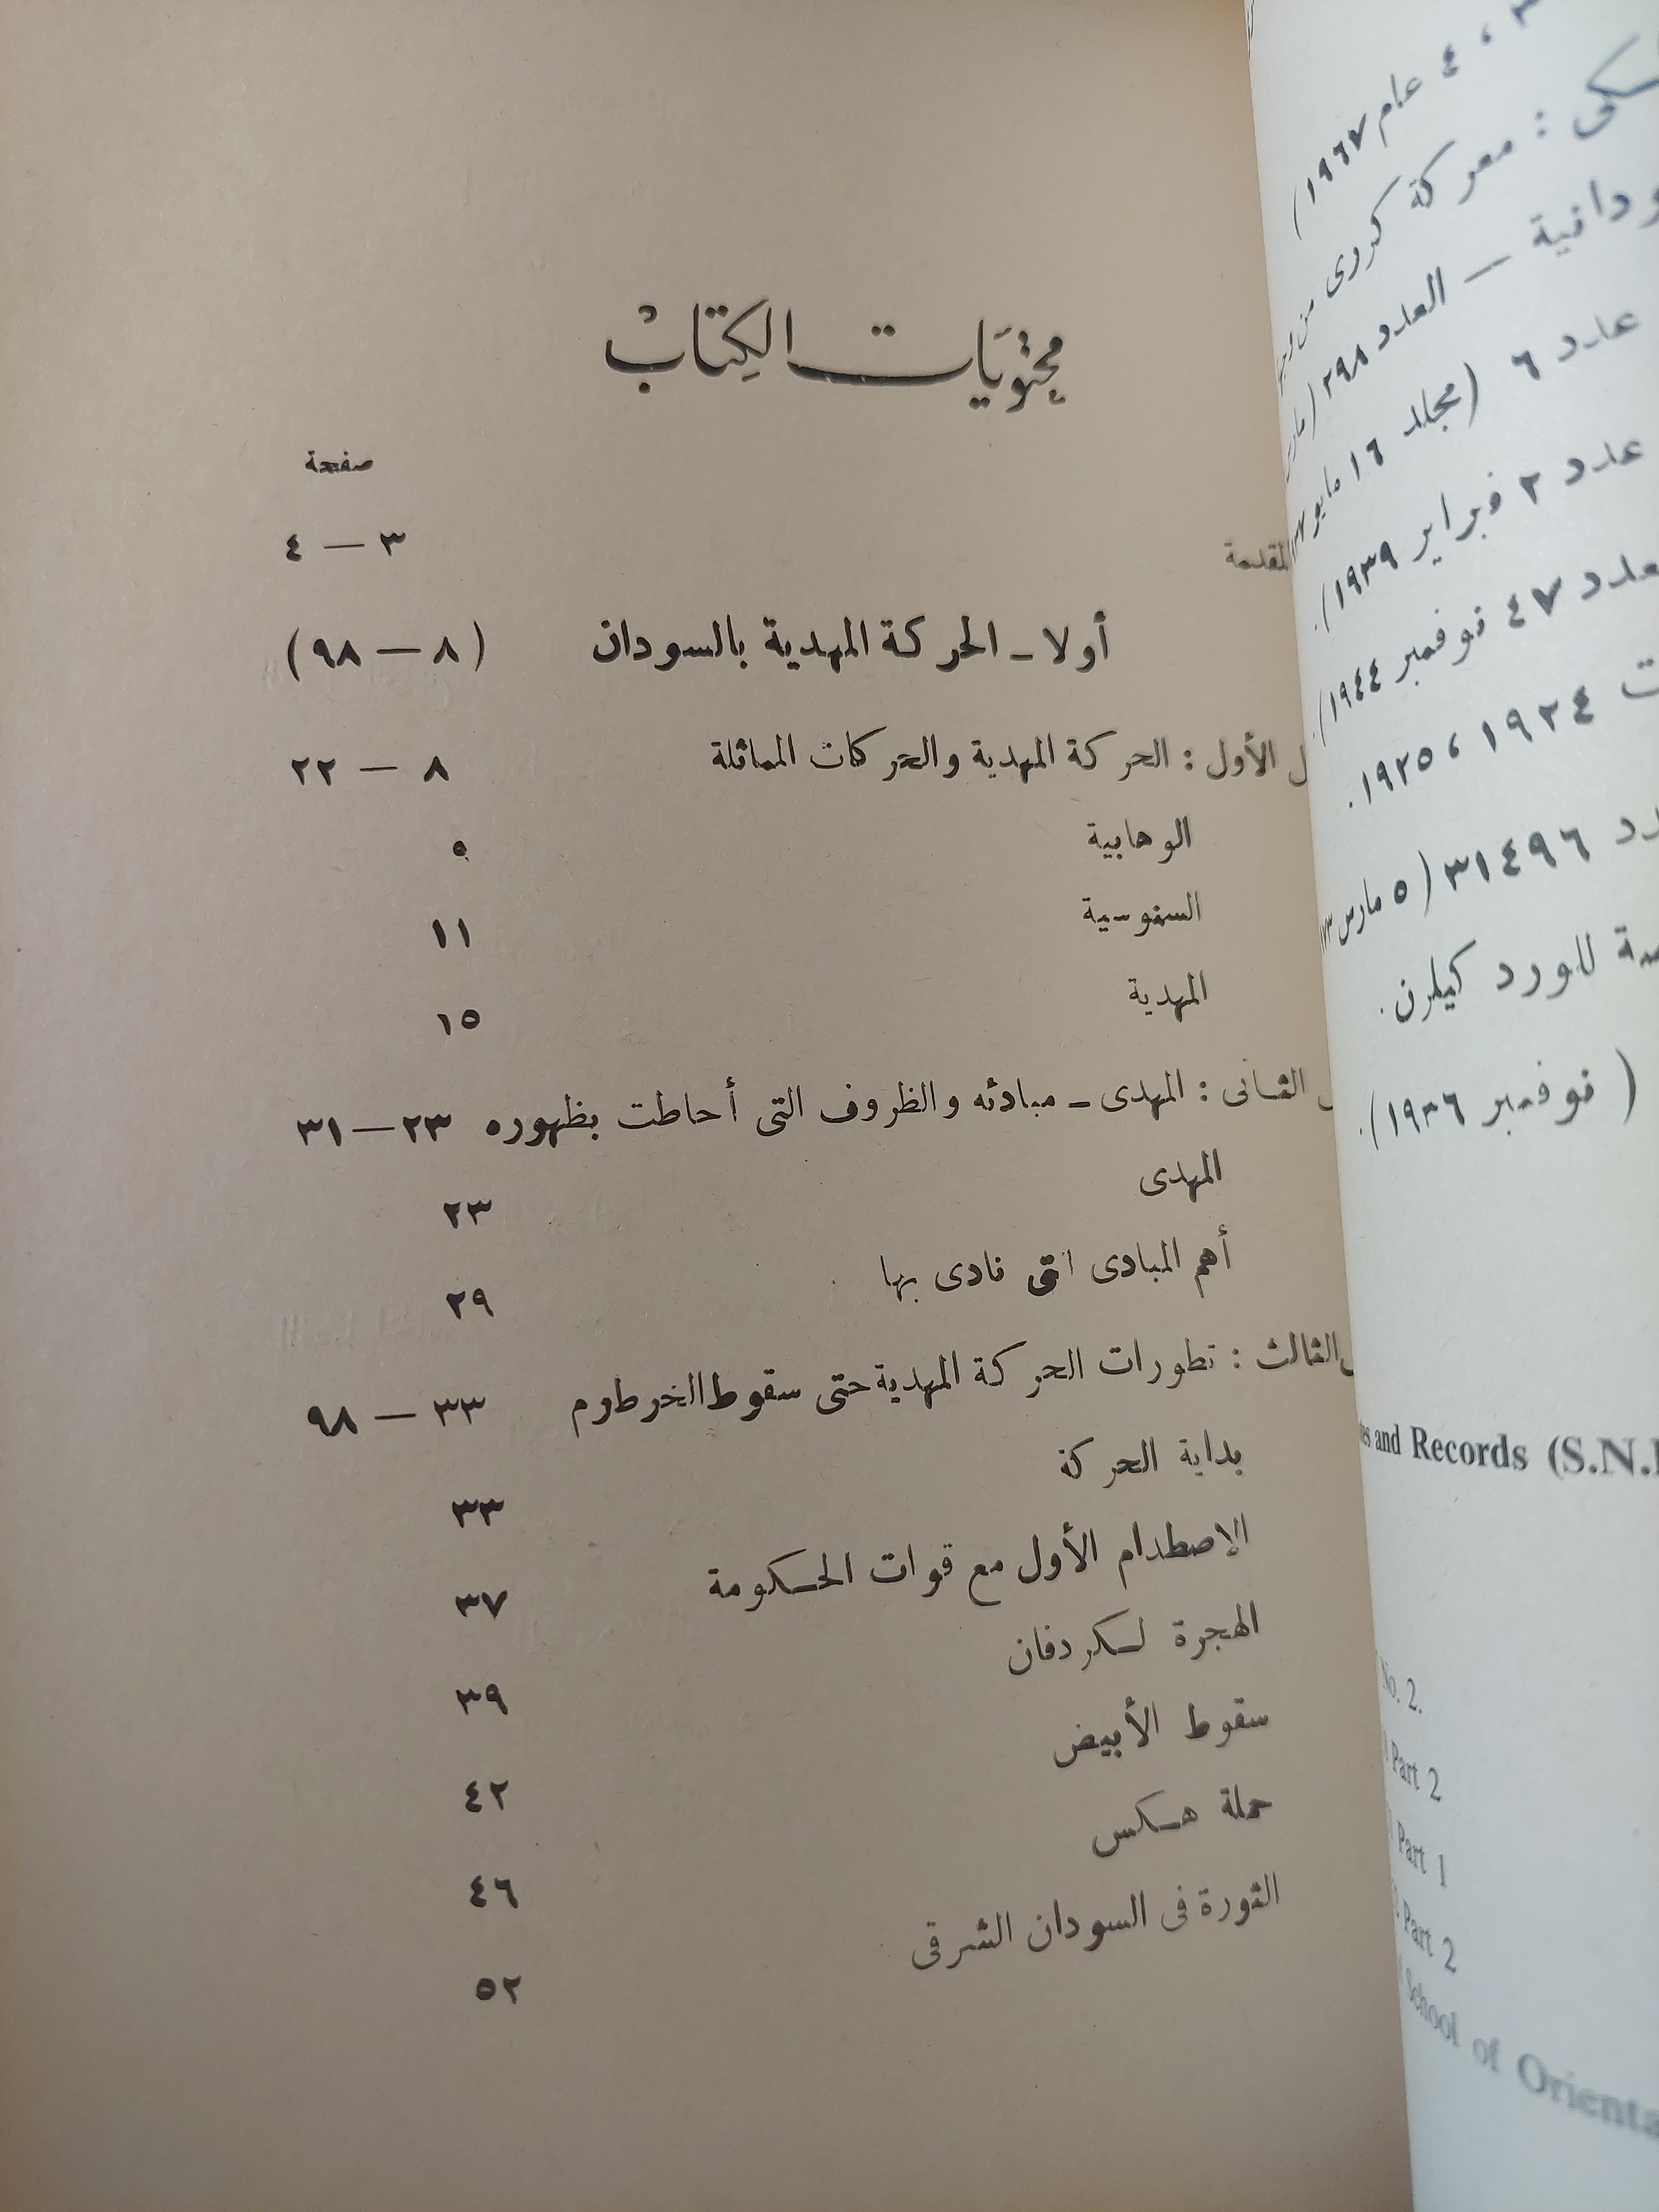 محتويات الكتاب
صفحة
المقدمة ٣ — ٤
أولا ـ الحركة المهدية بالسودان (٨ — ٩٨)
الأول : الحركة المهدية والحركات المماثلة ٨ — ٢٢
الوهابية ٩
السنوسية ١١
المهدية ١٥
الثانى : المهدى ـ مبادئه والظروف التى أحاطت بظهوره ٢٣ — ٣١
المهدى ٢٣
أهم المبادى التى نادى بها ٢٩
الثالث : تطورات الحركة المهدية حتى سقوط الخرطوم ٣٣ — ٩٨
بداية الحركة ٣٣
الإصطدام الأول مع قوات الحكومة ٣٧
الهجرة لكردفان ٣٩
سقوط الأبيض ٤٢
حملة هكس ٤٦
الثورة فى السودان الشرقى ٥٢
، ٤ عام ١٩٦٧)
: معركة كررى من
— العدد ٢٩٨ (
عدد ٦ (مجلد ١٦ مايو
عدد ٢ فبراير ١٩٣٩).
٤٧ نوفمبر ١٩٤٤).
١٩٢٤ ، ١٩٢٥.
٣١٤٩٦ (٥ مارس
للورد كيلرن.
(نوفمبر ١٩٣٦).
and Records (S.N.
No. 2.
Part 2
Part 1
Part 2
School of